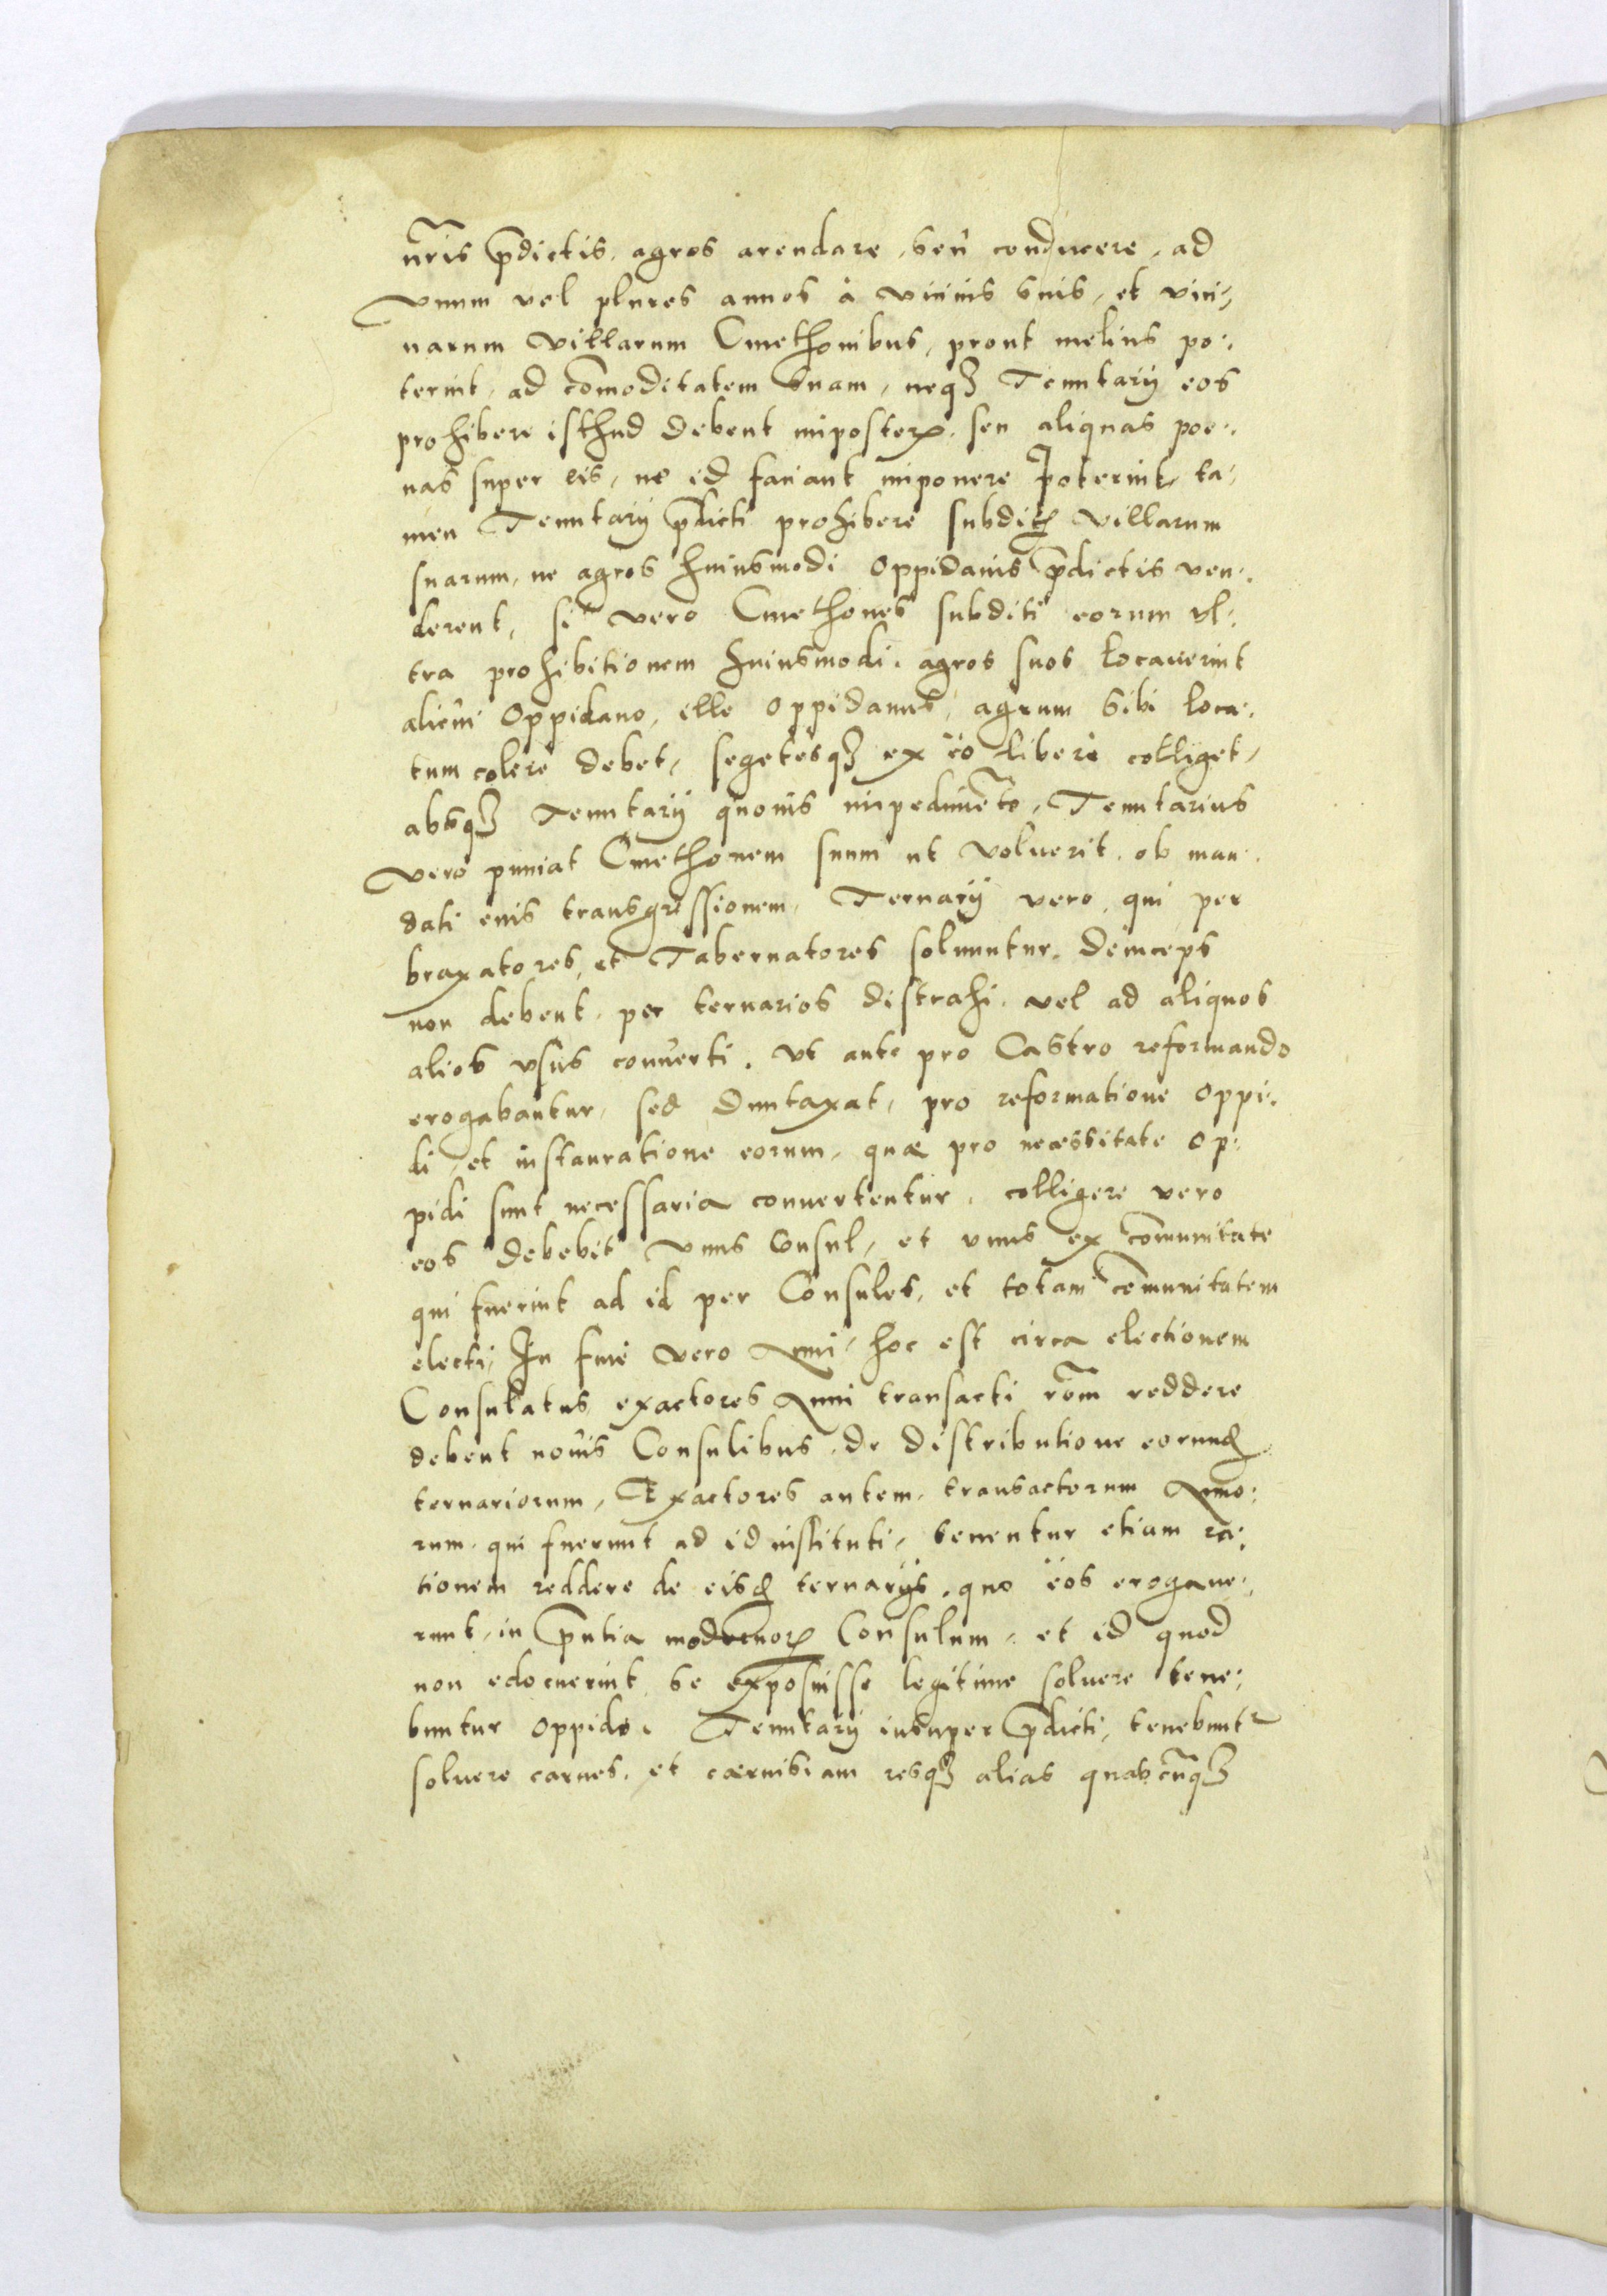 nr̃is p̄dictis, agros arendare, seu conducere, ad
vnum vel plures annos à vicinis suis, et vici⸗
narum villarum Cmethonibus, prout melius po⸗
terint, ad com̄oditatem suam, neqȝ Tenutarÿ eos
prohibere isthud debent imposterꝝ. seu aliquas poe⸗
nas super eis, ne id faciant imponere poterint, ta⸗
men Tenutarÿ p̄dicti prohibere subditꝭ villarum
suarum, ne agros huiusmodi Oppidanis p̄dictis ven⸗
derent, si vero Cmethones subditi eorum vl⸗
tra prohibitionem huiusmodi, agros suos locauerint
alicui Oppidano, ille oppidanus, agrum sibi loca⸗
tum colere debet, segetesqȝ ex eo libere colliget,
absqȝ Tenutarÿ quouis impedimēto, Tenutarius
vero puniat Cmethonem suum ut voluerit, ob man⸗
dati euis transgressionem, Ternarÿ vero, qui per
braxatores, et Tabernatores soluuntur, deinceps
non debent, per ternarios distrahi, vel ad aliquos
alios vsus conuerti, vt ante pro Castro reformando
erogabantur, sed duntaxat, pro reformatione oppi⸗
di, et instauratione eorum, quæ pro necessitate op⸗
pidi sunt necessaria conuertentur, colligere vero
eos debebit vnus Consul, et vnus ex com̄unitate
qui fuerint ad id per Consules, et totam com̄unitatem
electi, In fine vero Anni, hoc est circa electionem
Consulatus, exactores Anni transacti rōm reddere
debent nouis Consulibus, de distributione eorundꝫ
ternariorum, Exactores autem, transactorum Anno⸗
rum, qui fuerunt ad id instituti, tenentur etiam ra⸗
tionem reddere de eisdꝫ ternarÿs, quo eos erogaue⸗
runt, in p̄ntia modernorꝝ Consulum, et id quod
non edocuerint se exposuisse legitime soluere tene⸗
buntur oppido. Tenutarÿ insuper p̄dicti, tenebunt̃
soluere carnes, et cæruisiam resqȝ alias quascūqȝ